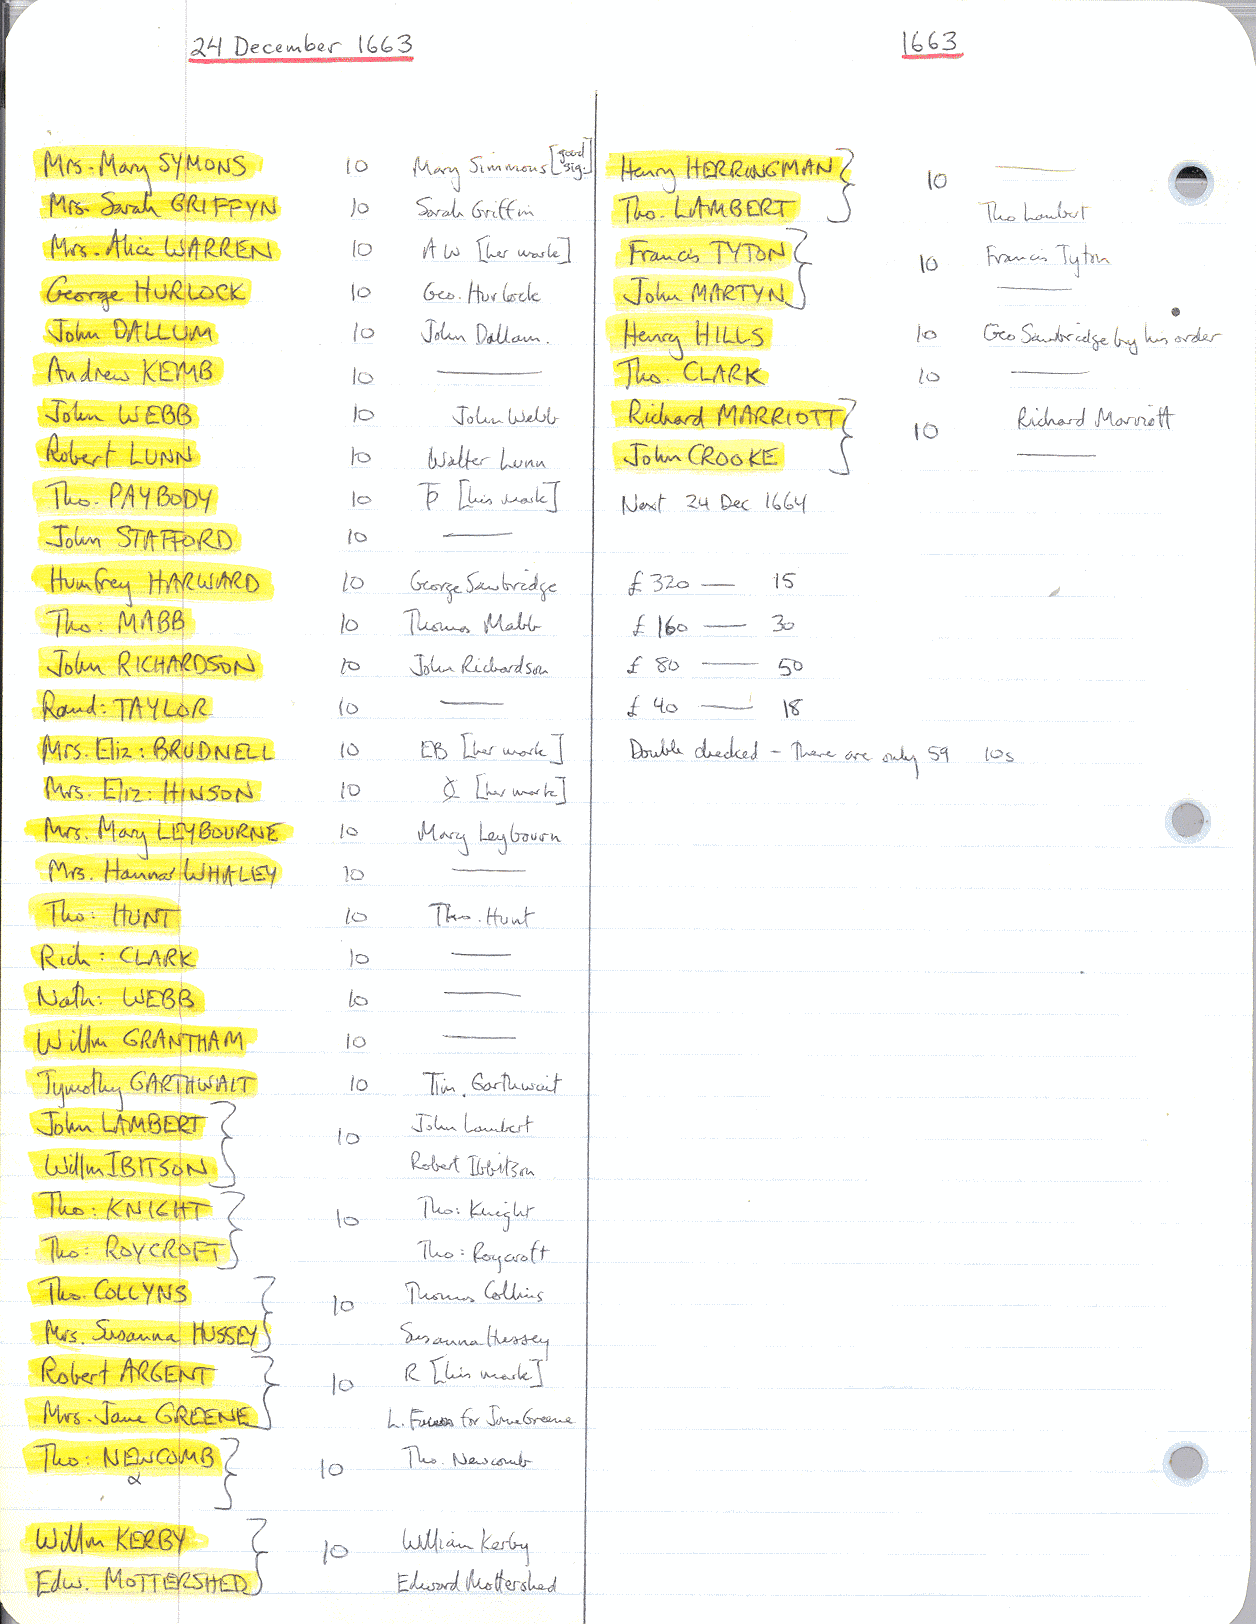 24 December 1663
Mrs. Mary SYMONS 10 Mary Simmons [good sig.]
Mrs. Sarah GRIFFYN 10 Sarah Griffin
Mrs. Alice WARREN 10 AW [her mark]
George HURLOCK 10 Geo. Hurlock
John DALLUM 10 John Dallam.
Andrew KEMB 10 —
John WEBB 10 John Webb
Robert LUNN 10 Walter Lunn
Tho. PAYBODY 10 TP [his mark]
John STAFFORD 10 —
Humfrey HARWARD 10 George Sawbridge
Tho: MABB 10 Thomas Mabb
John RICHARDSON 10 John Richardson
Rand: TAYLOR 10 —
Mrs. Eliz: BRUDNELL 10 EB [her mark]
Mrs. Eliz: HINSON 10 [her mark]
Mrs. Mary LEYBOURNE 10 Mary Leybourn
Mrs. Hanna WHALEY 10 —
Tho: HUNT 10 Tho. Hunt
Rich: CLARK 10 —
Nath: WEBB 10 —
Willm GRANTHAM 10 —
Tymothy GARTHWAIT 10 Tim. Garthwait
John LAMBERT } 10 John Lambert
Willm IBITSON Robert Ibbitson
Tho: KNIGHT } 10 Tho: Knight
Tho: ROYCROFT Tho: Roycroft
Tho. COLLYNS } 10 Thomas Collins
Mrs. Susanna HUSSEY Susanna Hussey
Robert ARGENT } 10 R [his mark]
Mrs. Jane GREENE L. for Jane Greene
Tho: NEWCOMB } 10 Tho. Newcomb
&
Willm KERBY } 10 William Kerby
Edw. MOTTERSHED Edward Mottershed
1663
Henry HERRINGMAN } 10 —
Tho. LAMBERT Tho Lambert
Francis TYTON } 10 Francis Tyton
John MARTYN —
Henry HILLS 10 Geo Sawbridge by his order
Tho. CLARK 10 —
Richard MARRIOTT } 10 Richard Marriott
John CROOKE —
Next 24 Dec 1664
£320 — 15
£160 — 30
£80 — 50
£40 — 18
Double checked - There are only 59 10s